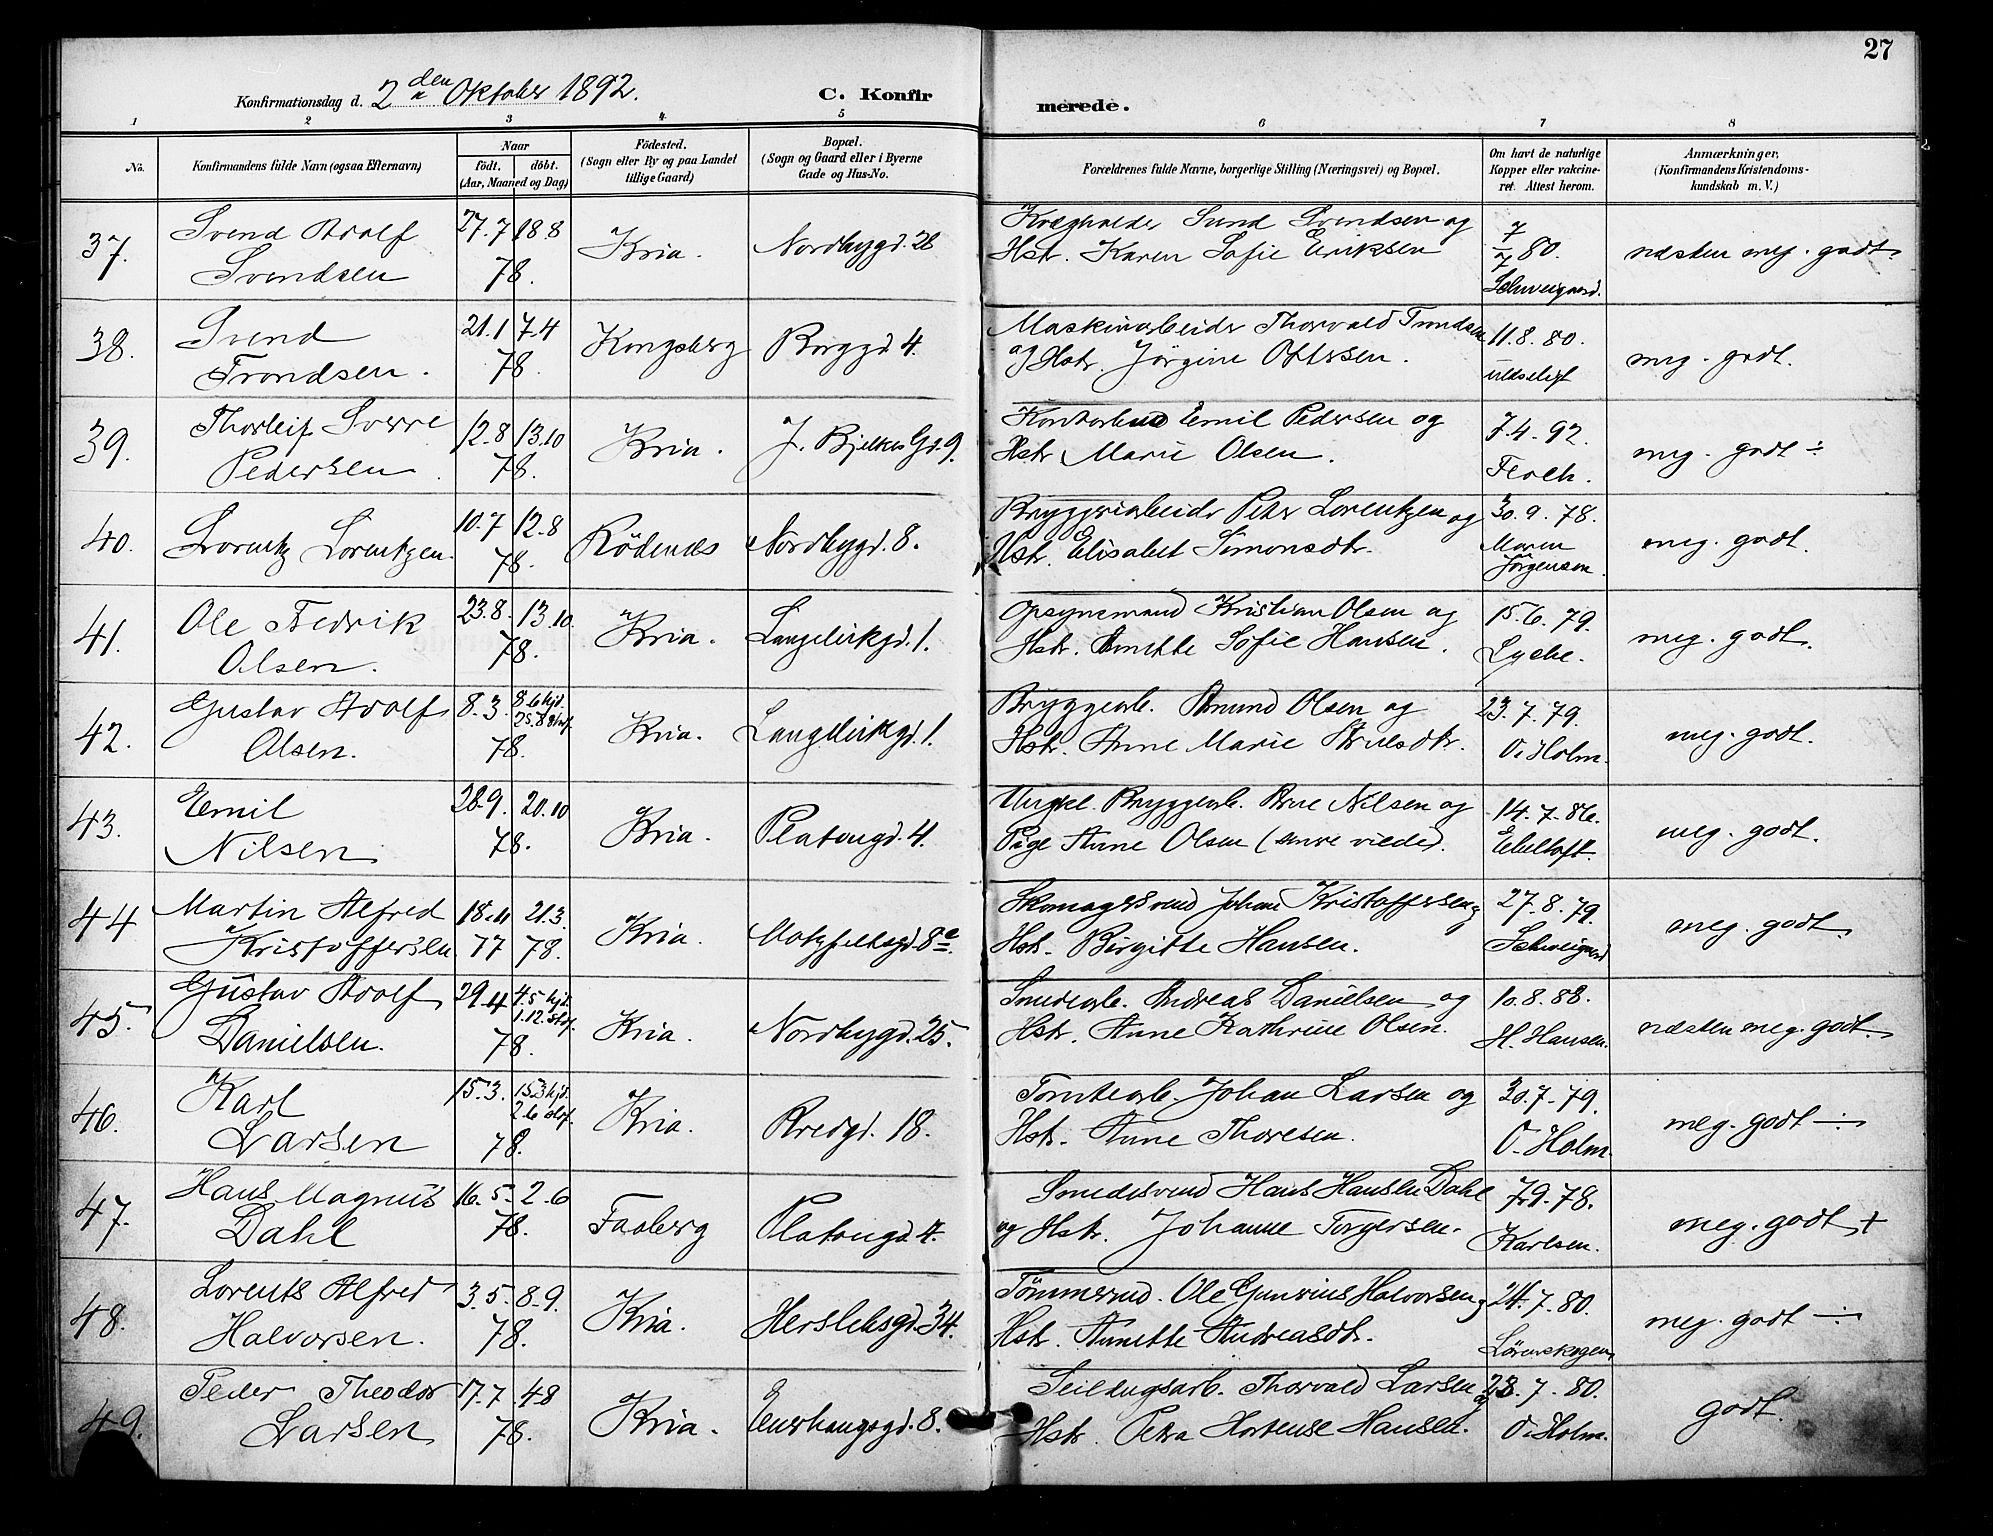 27
Konfirmationsdag d. 2den Oktober 1892.
C. Konfirmerede.
1 2 3 4 5 6 7 8
No.
Konfirmandens fulde Navn (ogsaa Efternavn)
Naar
født. døbt.
(Aar, Maaned og Dag)
Födested.
(Sogn eller By og paa Landet
tillige Gaard)
Bopæl.
(Sogn og Gaard eller i Byerne
Gade og Hus-No.
Forældrenes fulde Navne, borgerlige Stilling (Næringsvei) og Bopæl.
Om havt de naturlige
Kopper eller vakcine-
ret. Attest herom.
Anmærkninger.
(Konfirmandens Kristendoms-
kundskab m. V.)
37. Svend Adolf 27.7 18.8 Kria. Nordbygd. 28 Svend Svendsen og 7/7 80. næsten meg. godt.
Svendsen 78. Hstr. Karen Sofie Eriksen Schweigaard.
38. Svend 21.1 7.4 Kongsberg Borggd 4. Maskinarbeider Thorvald Trondsen 11.8.80. meg. godt.
Trondsen. 78. og Hstr. Jörgine Ottersen. ulæseligt
39. Thorleif Sverre 12.8 13.10 Kria. J. Bjelkes Gd. 9. Kontorbud Emil Pedersen og 7.4.92. meg. godt ÷
Pedersen. 78. Hstr. Marie Olsen.
40. Lorentz Lorentzen. 10.7 12.8 78. Rödenæs Nordbygd. 8. Bryggeriarbeider Peter Lorentzen og 30.9.78. meg. godt.
Hstr. Elisabet Simonsdtr. Maren
Jörgensen.
41. Ole Fredrik 23.8. 13.10. Kria. Langleikgd. 1. Opsynsmand Kristian Olsen og 15.6.79. meg. godt.
Olsen. 78. Hstr. Anette Sofie Hansen. Lyche.
42. Gustav Adolf 8.3. 8.6 hjd. 25.8 stadf. Kria. Langleikgd. 1. Bryggearb. Amund Olsen og 23.7.79. meg. godt.
Olsen. 78. Hstr. Anne Marie O. Holm.
43. Emil 28.9. 20.10 Kria. Platougd. 4. Ungkl. Bryggearb. Arne Nilsen og 14.7.86. meg. godt.
Nilsen 78. Pige Anne Olsen (senere viede). Ebeltoft.
44 Martin Alfred 18.11 21.3. Kria. Motzfeldtsgd. 8 Skomagersvend Johan Kristoffersen og 27.8.79. meg. godt.
Kristoffersen 77 78. Hstr. Birgitte Hansen. Schweigaard
45. Gustav Adolf 29.4 4.5 hjd. 1.12. stadf. Kria. Nordbygd. 25. Smedearb. Andreas Danielsen og 10.8.88. næsten meg. godt.
Danielsen. 78. Hstr. Anne Kathrine Olsen. H. Hansen.
46. Karl 15.3. 15.3 hjd. 2.6 stadf. Kria. Bredgd. 18. Tomtearb. Johan Larsen og 30.7.79. meg. godt ÷
Larsen 78. Hstr. Anne Thoresen. O. Holm.
47. Hans Magnus 16.5. 2.6 Faaberg Platougd 4. Smedesvend Hans Hansen Dahl 7.9.78. meg. godt +
Dahl 78. og Hstr. Johanne Torgersen. Karlsen.
48. Lorents Alfred 3.5. 8.9. Kria. Herslebsgd. 34. Tömmersvd. Ole Gunerius Halvorsen og 24.7.80. meg. godt ÷
Halvorsen. 78. Hstr. Annette Andreasdtr. Lörenskogen
49. Peder Theodor 17.7. 4.8 Kria. Enerhaugsgd. 8. Seildugsarb. Thorvald Larsen og 28.7.80. godt.
Larsen 78. Hstr. Petra Hortense Hansen. O. Holm.